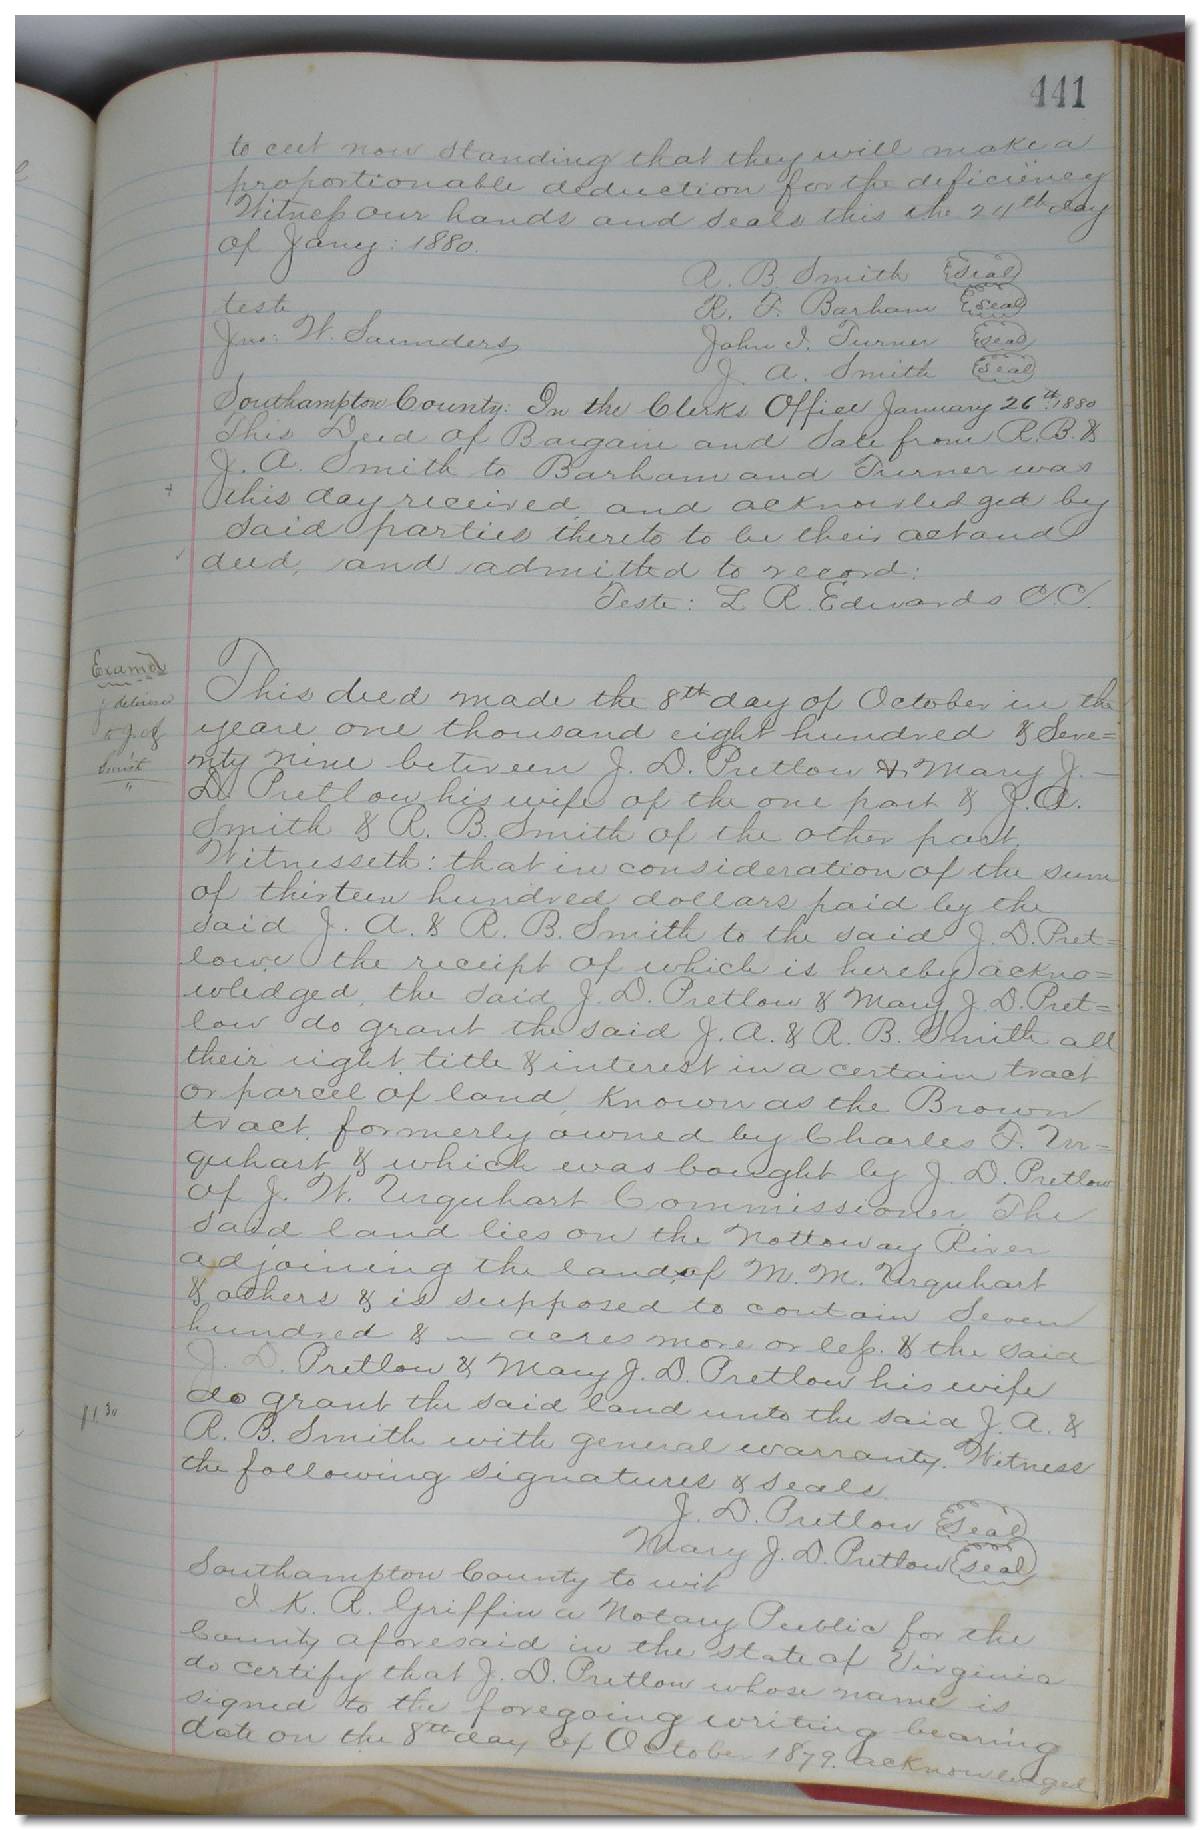 441
to cut now standing that they will make a
proportionable deduction for the deficiency
Witness our hands and seals this the 24th day
of Jany: 1880.
R. B Smith Seal
teste R. F. Barham Seal
Jno: W. Saunders John I. Turner Seal
J. A. Smith Seal
Southampton County: In the Clerks Office January 26th 1880
This Deed of Bargain and Sale from R. B. &
J. A. Smith to Barham and Turner was
+ this day received and acknowledged by
said parties thereto to be their act and
deed, and admitted to record:
Teste: L R. Edwards C.C.
Examd
delivered
to J. A.
Smith
"
This deed made the 8th day of October in the
yeare one thousand eight hundred & Seve=
nty nine between J. D. Pretlow & Mary J. —
D. Pretlow his wife of the one part & J. A.
Smith & R. B. Smith of the other part.
Witnesseth: that in consideration of the sum
of thirteen hundred dollars paid by the
said J. A. & R. B. Smith to the said J. D. Pret=
low, the receipt of which is hereby ackno=
wledged, the said J. D. Pretlow & Mary J. D. Pret=
low do grant the said J. A. & R. B. Smith all
their right, title & interest in a certain tract
or parcel of land, known as the Brown
tract, formerly owned by Charles F. Ur=
quhart & which was bought by J. D. Pretlow
of J. W. Urquhart Commissioner. The
said land lies on the Nottoway River
adjoining the lands of M. M. Urquhart
& others & is supposed to contain Seven
hundred & — acres more or less. & the said
J. D. Pretlow & Mary J. D. Pretlow his wife
do grant the said land unto the said J. A. &
R. B. Smith with general warranty. Witness
the following signatures & seals.
J. D. Pretlow Seal
Mary J. D. Pretlow Seal
Southampton County to wit
I K. R. Griffin a Notary Public for the
County aforesaid in the state of Virginia
do certify that J. D. Pretlow whose name is
signed to the foregoing writing bearing
date on the 8th day of October 1879. acknowledged